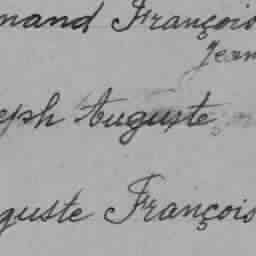 mand François
Jean
eph Auguste
guste François